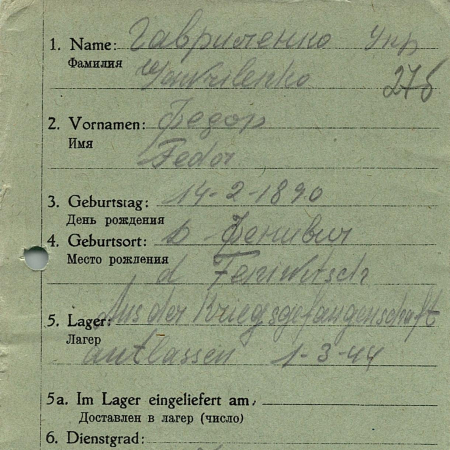 1. Name: Гавриленко Укр
Фамилия
Gawrilenko 276
2. Vornamen: Федор
Имя
Fedor
3. Geburtstag: 14-2-1890
День рождения
4. Geburtsort: д
Место рождения
d
5. Lager: Aus der Kriegsgefangenschaft
Лагер
entlassen 1-3-44
5a. Im Lager eingeliefert am
Доставлен в лагер (число)
6. Dienstgrad: